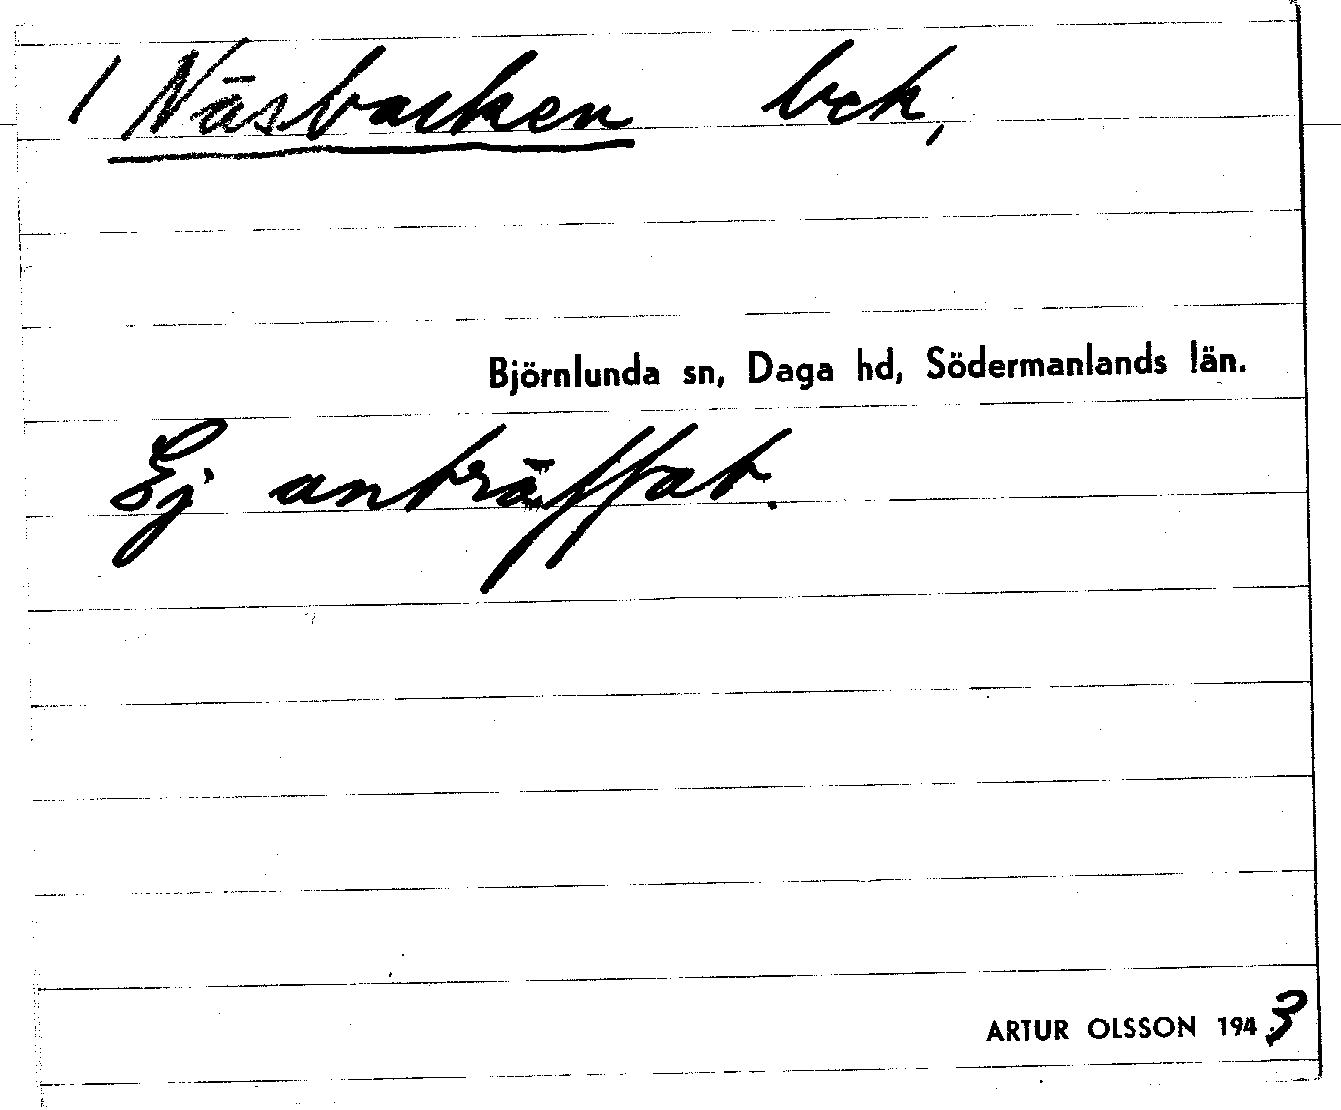 / Näsbacken bck,
Björnlunda sn, Daga hd, Södermanlands län.
Ej anträffat.
ARTUR OLSSON 1943